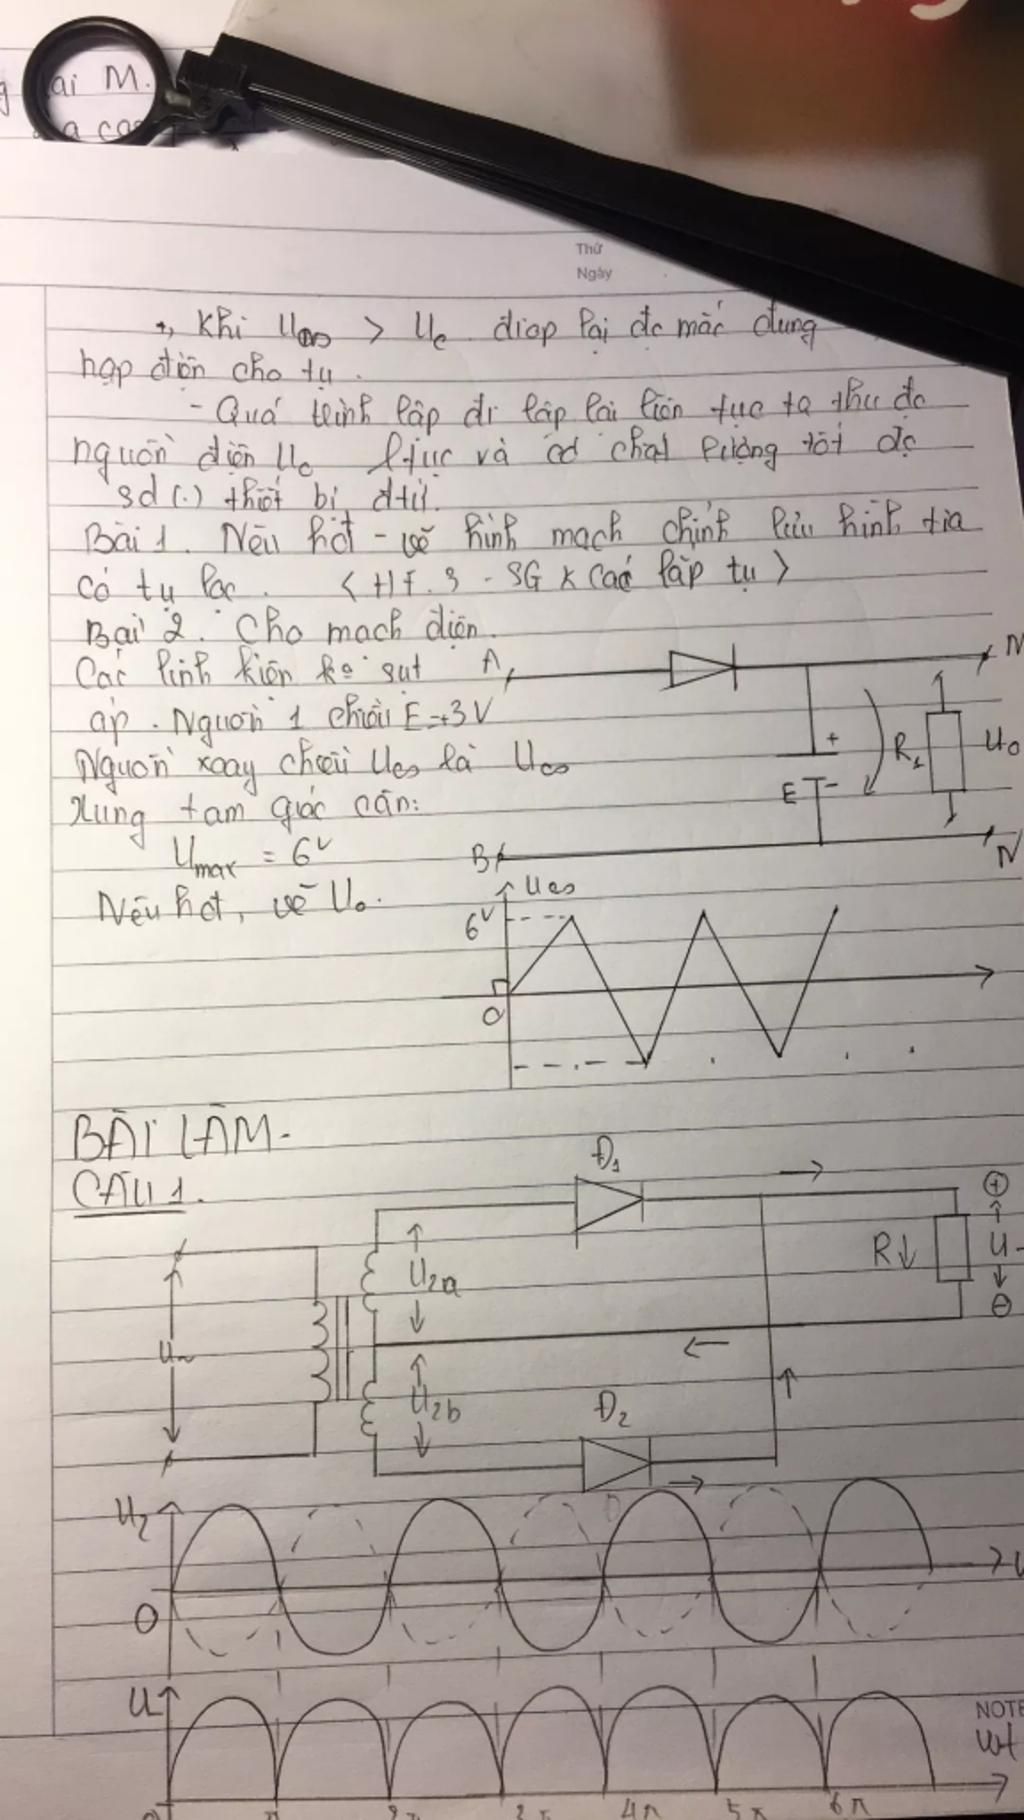 ai M.
a ca
Thứ
Ngày
+, Khi U~ > Uc diop lại đc mắc đung
hạp điện cho tụ.
- Quá trình lập đi lập lại liên tục ta thu đc
nguồn điện Uc ltục và có chất lượng tốt đc
sd (.) thiết bị đtử.
Bài 1. Nêu hđt - vẽ hình mạch chỉnh lưu hình tia
có tụ lọc. < H 1.3 - SGK các lắp tụ >
Bài 2. Cho mạch điện.
Các linh kiện ko sụt
áp. Nguồn 1 chiều E=+3V
Nguồn xoay chiều U~ là U~
xung tam giác cân:
Umax = 6V
Nêu hđt, vẽ U0.
A
M
+
E
-
R1
U0
B
N
U~
6V
O
BÀI LÀM-
CÂU 1.
Đ1
U~
U2a
U2b
R
+
U-
-
Đ2
U2
O
U
NOTE
wt
0 π 2π 3π 4π 5π 6π